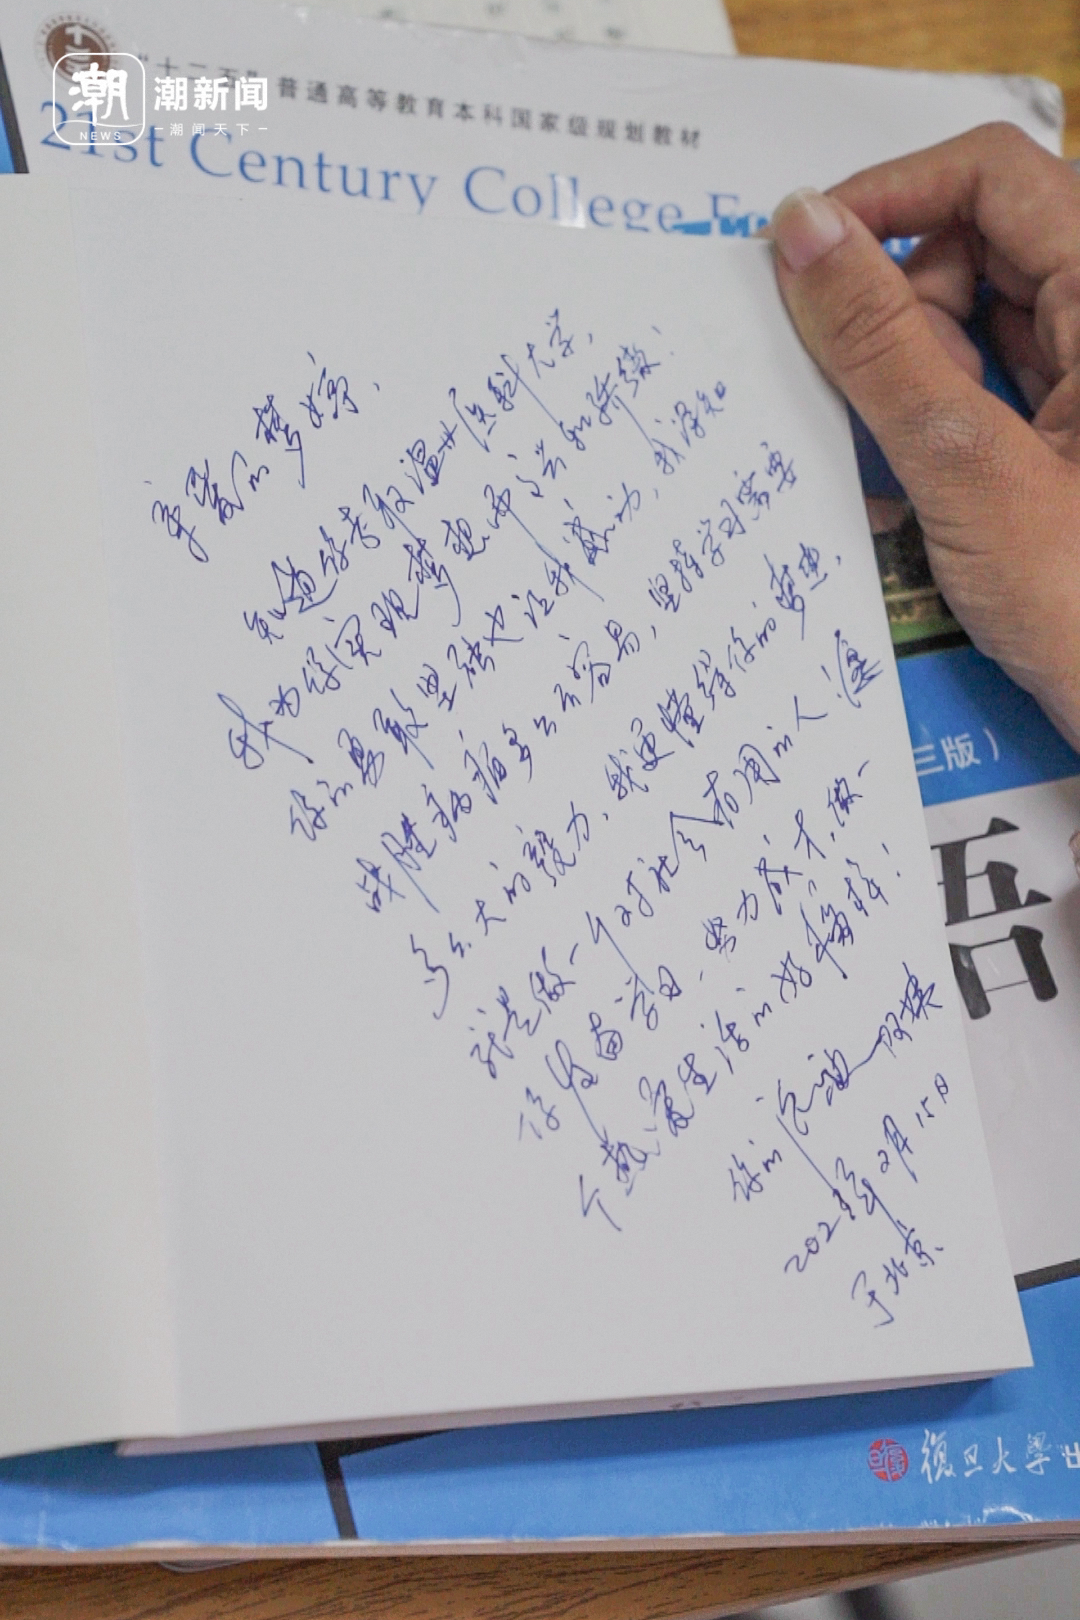 潮
NEWS
潮新闻
潮闻天下
"十二五"普通高等教育本科国家级规划教材
21st Century College
亲爱的梦婷，
知道你考取温州医科大学，
我为你实现梦想而高兴和骄傲！
你的勇敢坚强也让我感动，我深知
战胜病痛多么不容易，坚持学习需要
多么大的毅力，我更懂得你的梦想，
就是做一个对社会有用的人！愿
你发奋学习，努力成才，做一
个热爱生活的好榜样！
你的 阿姨
2023年2月15日
于北京
三版）
语
復旦大学出